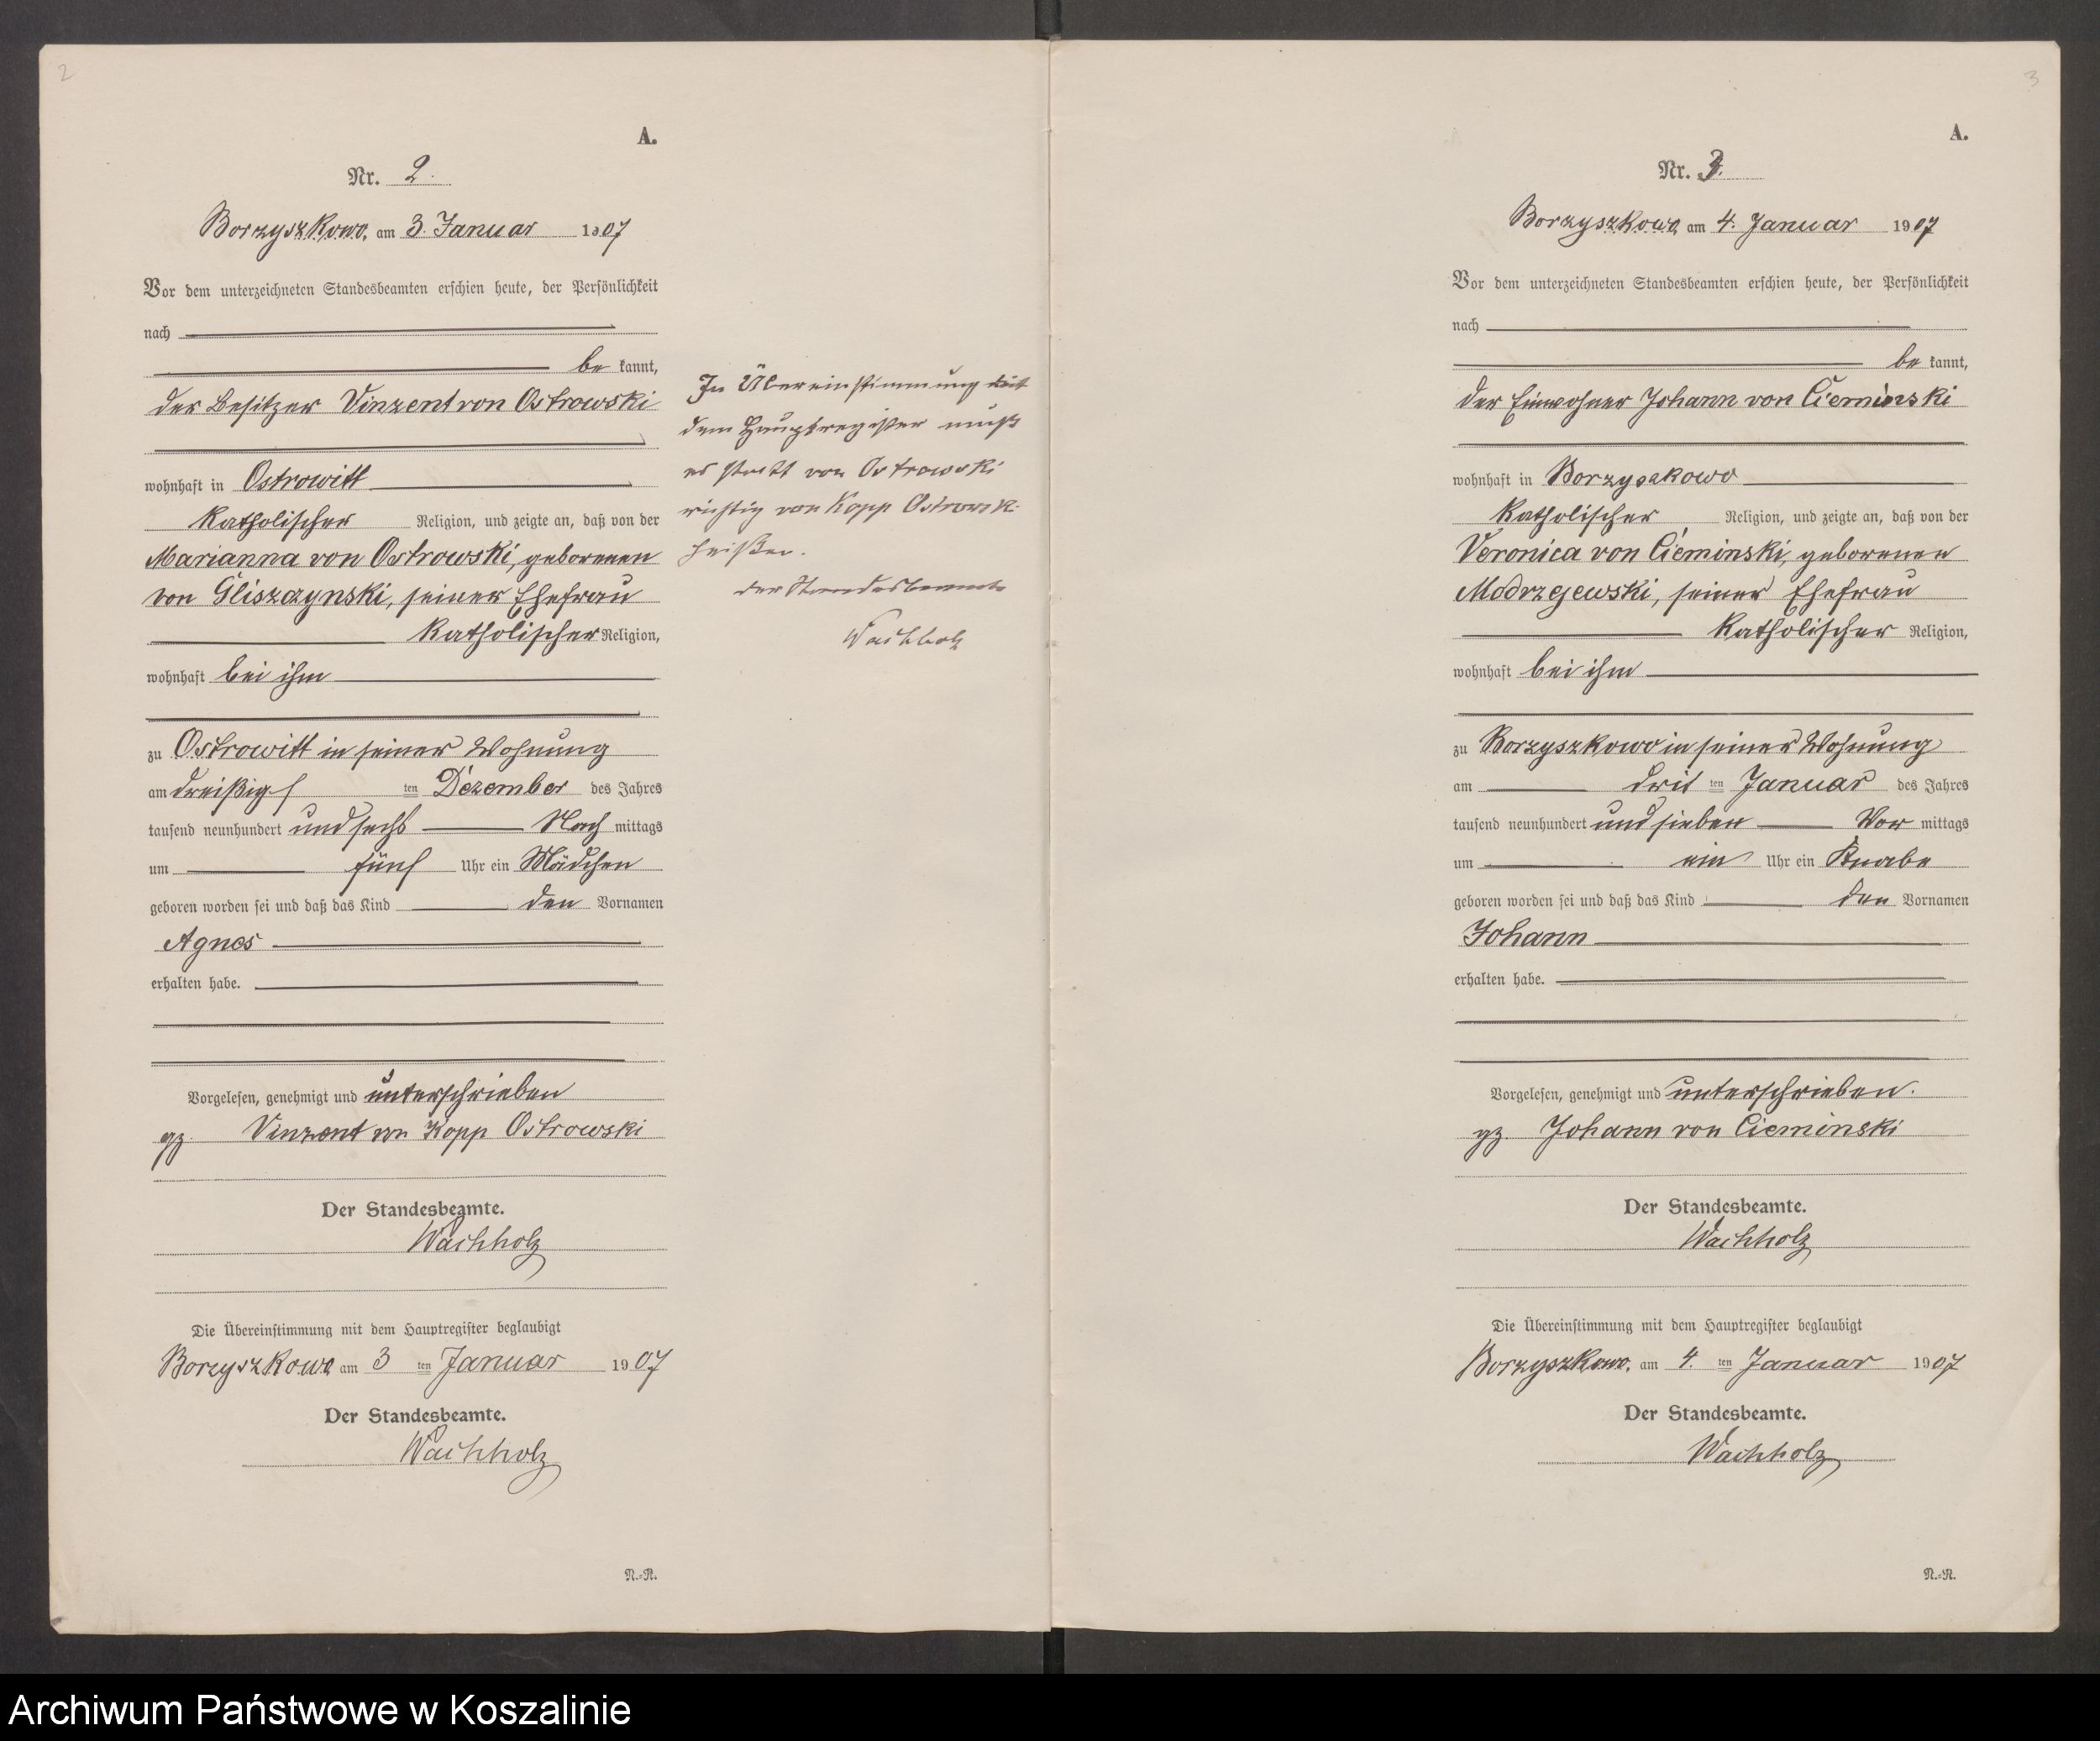 2
A.
Nr. 2.
Borzyszkowo, am 3. Januar 1907
Vor dem unterzeichneten Standesbeamten erschien heute, der Persönlichkeit
nach
be kannt,
der Besitzer Vinzent von Ostrowski
wohnhaft in Ostrowitt
katholischer Religion, und zeigte an, daß von der
Marianna von Ostrowski, geborenen
von Gliszczynski, seiner Ehefrau
katholischer Religion,
wohnhaft bei ihm
zu Ostrowitt in seiner Wohnung
am dreißigs ten Dezember des Jahres
tausend neunhundert und sechs Nach mittags
um fünf Uhr ein Mädchen
geboren worden sei und daß das Kind den Vornamen
Agnes
erhalten habe.
Vorgelesen, genehmigt und unterschrieben
gz. Vinzent von Kopp Ostrowski
Der Standesbeamte.
Wachholz
Die Übereinstimmung mit dem Hauptregister beglaubigt
Borzyszkowo am 3 ten Januar 1907
Der Standesbeamte.
Wachholz
N.=R.
In Übereinstimmung mit
dem Hauptregister muß
es statt von Ostrowski
richtig von Kopp Ostrowski
heißen.
der Standesbeamte
Wachholz
3
A.
Nr. 3.
Borzyszkowo, am 4. Januar 1907
Vor dem unterzeichneten Standesbeamten erschien heute, der Persönlichkeit
nach
be kannt,
der Einwohner Johann von Cieminski
wohnhaft in Borzyszkowo
katholischer Religion, und zeigte an, daß von der
Veronica von Cieminski, geborenen
Modrzejewski, seiner Ehefrau
katholischer Religion,
wohnhaft bei ihm
zu Borzyszkowo in seiner Wohnung
am drit ten Januar des Jahres
tausend neunhundert und sieben Vor mittags
um ein Uhr ein Knabe
geboren worden sei und daß das Kind den Vornamen
Johann
erhalten habe.
Vorgelesen, genehmigt und unterschrieben.
gz. Johann von Cieminski
Der Standesbeamte.
Wachholz
Die Übereinstimmung mit dem Hauptregister beglaubigt
Borzyszkowo, am 4. ten Januar 1907
Der Standesbeamte.
Wachholz
N.=R.
Archiwum Państwowe w Koszalinie